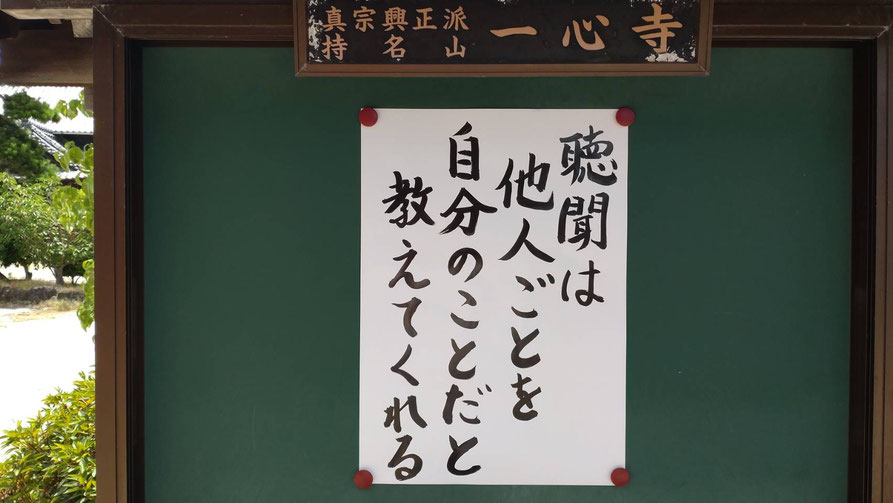 真宗興正派
持名山
一心寺
聴聞は
他人ごとを
自分のことだと
教えてくれる